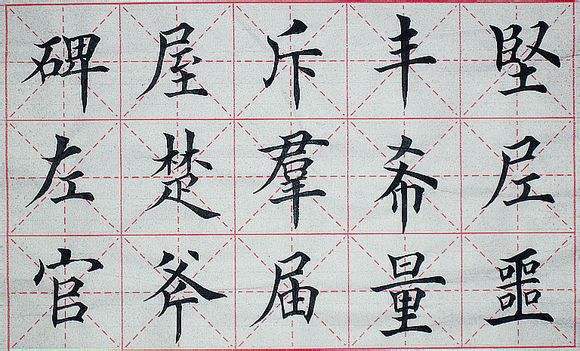 碑屋斥丰堅
左楚羣希
官斧届量噩